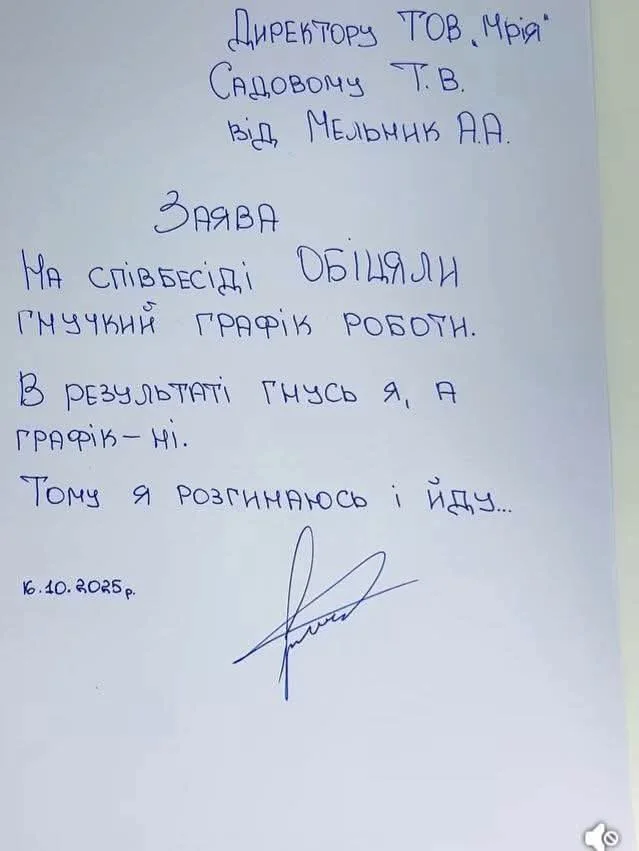 Директору ТОВ „Мрія“
Садовому Т.В.
від Мельник А.А.
Заява
На співбесіді ОБІЦЯЛИ
гнучкий графік роботи.
В результаті гнусь я, а
графік – ні.
Тому я розгинаюсь і йду...
16.10.2025р.